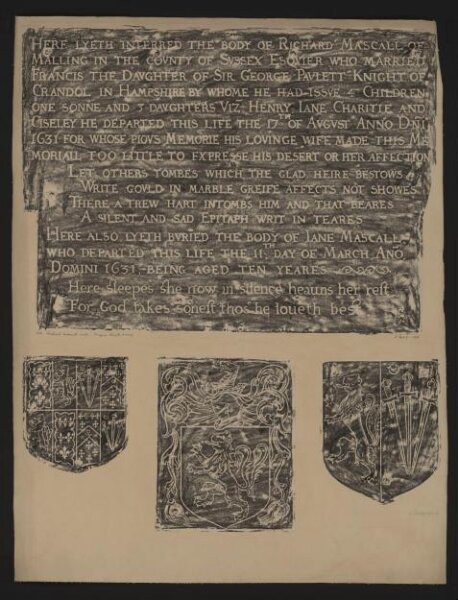 HERE LYETH INTERRED THE BODY OF RICHARD MASCALL OF
MALLING IN THE COVNTY OF SVSSEX ESQVIER WHO MARRIED
FRANCIS THE DAVGHTER OF SIR GEORGE PAVLETT KNIGHT OF
CRANDOL IN HAMPSHIRE BY WHOME HE HAD ISSVE 4 CHILDREN
ONE SONNE AND 3 DAVGHTERS VIZ: HENRY IANE CHARITIE AND
CISELEY HE DEPARTED THIS LIFE THE 17TH OF AVGVST ANNO DNI
1631 FOR WHOSE PIOVS MEMORIE HIS LOVINGE WIFE MADE THIS ME
MORIALL TOO LITTLE TO EXPRESSE HIS DESERT OR HER AFFECTION
LET OTHERS TOMBES WHICH THE GLAD HEIRE BESTOWS
WRITE GOVLD IN MARBLE GREIFE AFFECTS NOT SHOWES
THERE A TREW HART INTOMBS HIM AND THAT BEARES
A SILENT AND SAD EPITAPH WRIT IN TEARES
HERE ALSO LYETH BVRIED THE BODY OF IANE MASCALL
WHO DEPARTED THIS LIFE THE 11TH DAY OF MARCH ANO
DOMINI 1631 BEING AGED TEN YEARES
Here sleepes she now in silence heauns her rest
For God takes sonest thos he loueth best